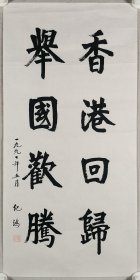 香港回歸
舉國歡騰
一九九七年五月